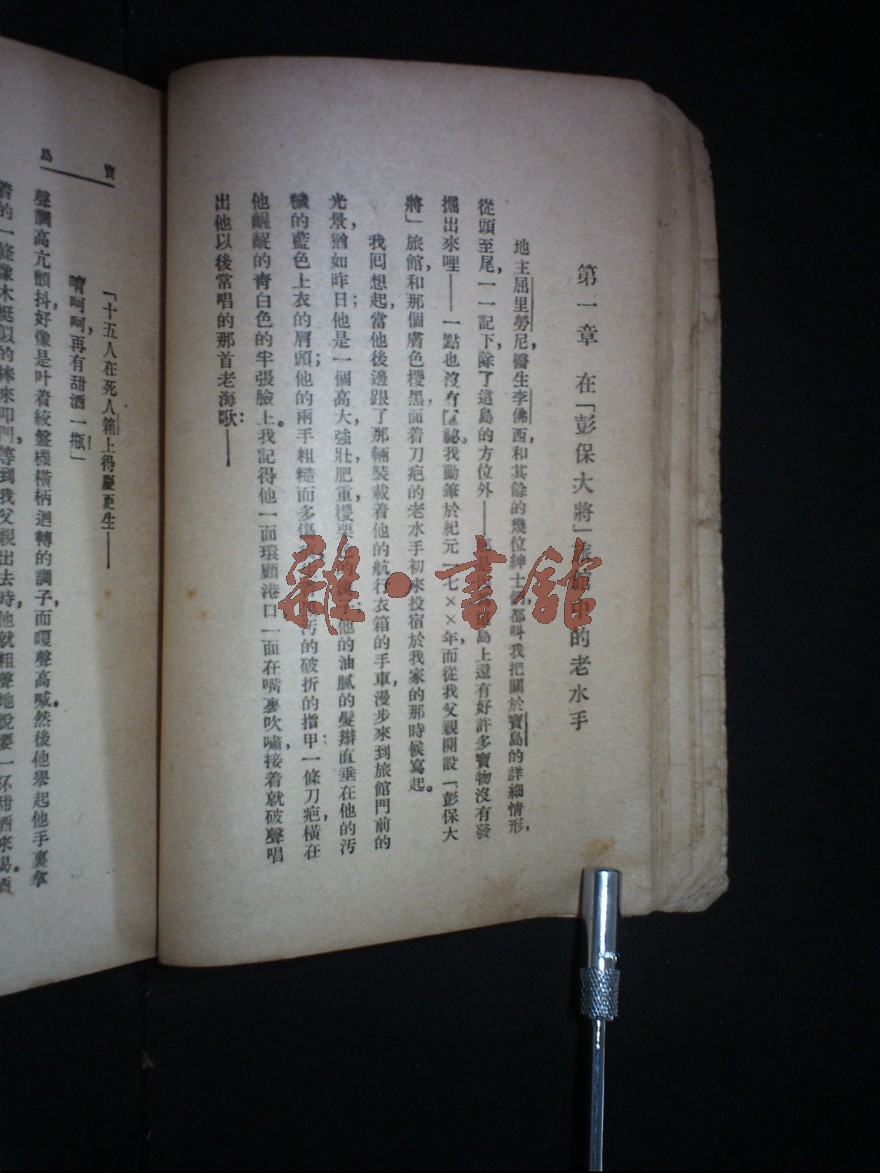 第一章 在「彭保大將」的老水手
地主屈里勞尼，醫生李佛西，和其餘的幾位紳士們，都叫我把關於寶島的詳細情形，
從頭至尾，一一記下，除了這島的方位外——島上還有好許多寶物沒有發
掘出來哩——一點也沒有祕。我動筆於紀元一七××年，而從我父親開設「彭保大
將」旅館，和那個膚色櫻黑，面着刀疤的老水手，初來投宿於我家的那時候寫起。
我回想起當他後邊跟了那輛裝載着他的航行衣箱的手車，漫步來到旅館門前的
光景，猶如昨日；他是一個高大，強壯，肥重，他的油膩的髮辮直垂在他的污
穢的藍色上衣的肩頭；他的兩手粗糙而多傷，污的破折的指甲；一條刀疤，橫在
他齷齪的青白色的半張臉上。我記得他一面環顧港口，一面在嘴裏吹嘯，接着就破聲唱
出他以後常唱的那首老海歌：——
寶島
「十五人在死人箱上得慶更生——
唷，呵呵，再有甜酒一瓶！」
聲調高亢顫抖，好像是叶着絞盤機橫柄迴轉的調子而嗄聲高喊。然後他舉起他手裏拿
着的一條像木梃似的棒來叩門，等到我父親出去時，他就粗聲地說要一杯甜酒來喝。